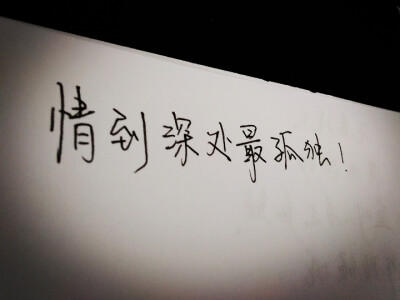 情到深处最孤独！